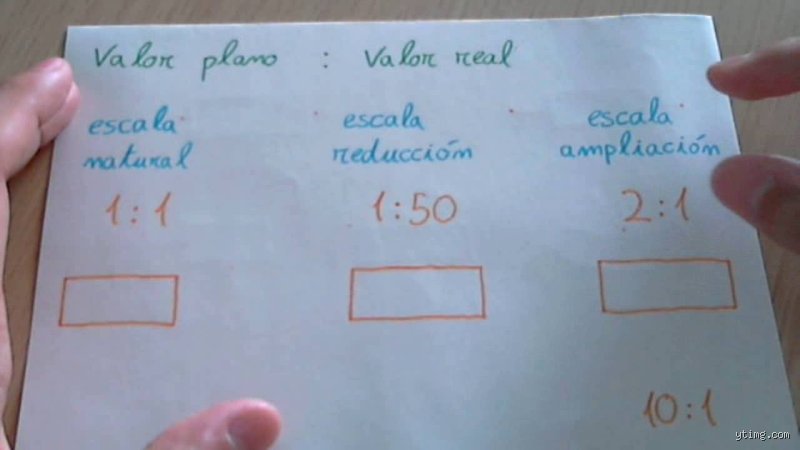 Valor plano : Valor real
escala natural
1:1
escala reducción
1:50
escala ampliación
2:1
10:1
ytimg.com